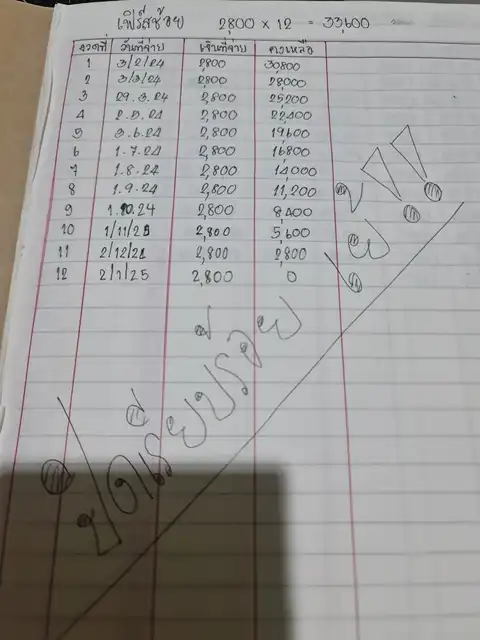 เฟิร์สช้อย 2,800 x 12 = 33,600
งวดที่ วันที่จ่าย เงินที่จ่าย คงเหลือ
1 3/2/24 2800 30,800
2 3/3/24 2800 28,000
3 29.3.24 2,800 25,200
4 2.5.24 2,800 22,400
5 3.6.24 2,800 19,600
6 1.7.24 2,800 16,800
7 1.8.24 2,800 14,000
8 1.9.24 2,800 11,200
9 1.10.24 2,800 8,400
10 1/11/25 2,800 5,600
11 2/12/24 2,800 2,800
12 2/1/25 2,800 0
ปิดเรียบร้อย
เย้!!